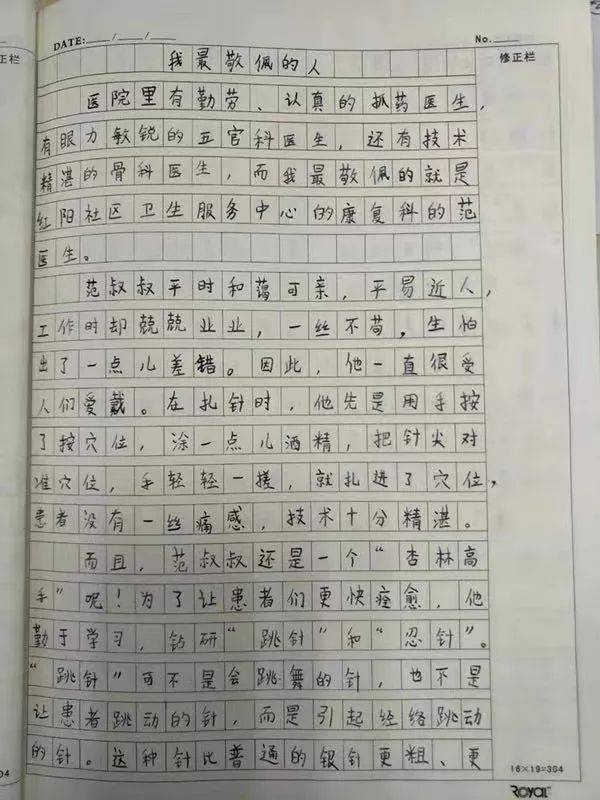 DATE: / /
No.
修正栏
我最敬佩的人
医院里有勤劳、认真的抓药医生，
有眼力敏锐的五官科医生，还有技术
精湛的骨科医生，而我最敬佩的就是
红阳社区卫生服务中心的康复科的范
医生。
范叔叔平时和蔼可亲，平易近人，
工作时却兢兢业业，一丝不苟，生怕
出了一点儿差错。因此，他一直很受
人们爱戴。在扎针时，他先是用手按
了按穴位，涂一点儿酒精，把针尖对
准穴位，手轻轻一搓，就扎进了穴位，
患者没有一丝痛感，技术十分精湛。
而且，范叔叔还是一个“杏林高
手”呢！为了让患者们更快痊愈，他
勤于学习，钻研“跳针”和“忍针”。
“跳针”可不是会跳舞的针，也不是
让患者跳动的针，而是引起经络跳动
的针。这种针比普通的银针更粗、更
16×19=304
ROYAL
04